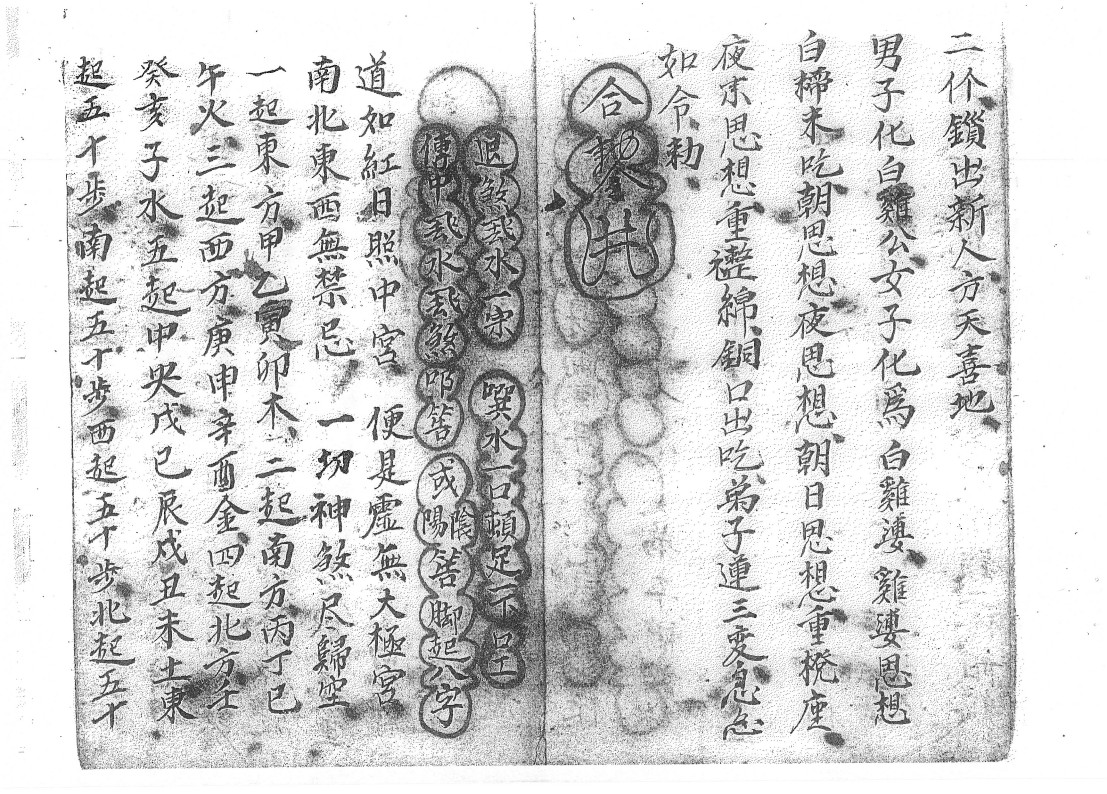 二仦鎖出新人方天喜地
男子化白雞公女子化爲白雞婆雞婆思想
白㯕未吃朝思想夜思想朝日思想重櫈座
夜未思想重綿銅口出吃弟子連三变急急
如令勅
合
井
退煞水一宗
噀水一口頓足一下
傳甲水煞答
或陰陽答脚起八字
道如紅日照中宮便是虛無大極宮
南北東西無禁忌一切神煞尽歸空
一起東方甲乙寅卯木二起南方丙丁巳
午火三起西方庚申辛酉金四起北方壬
癸亥子水五起中央戊己辰戌丑未土東
起五十步南起五十步西起五十步北起五十